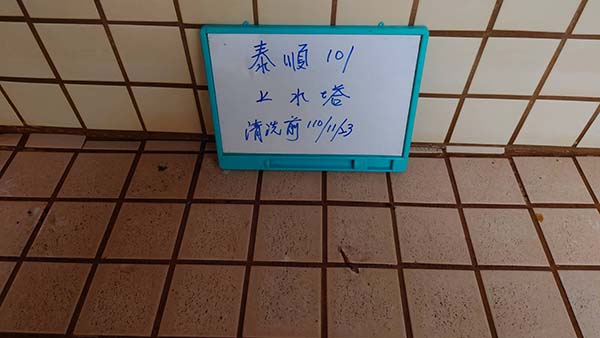 泰順101
上水塔
清洗前110/11/23